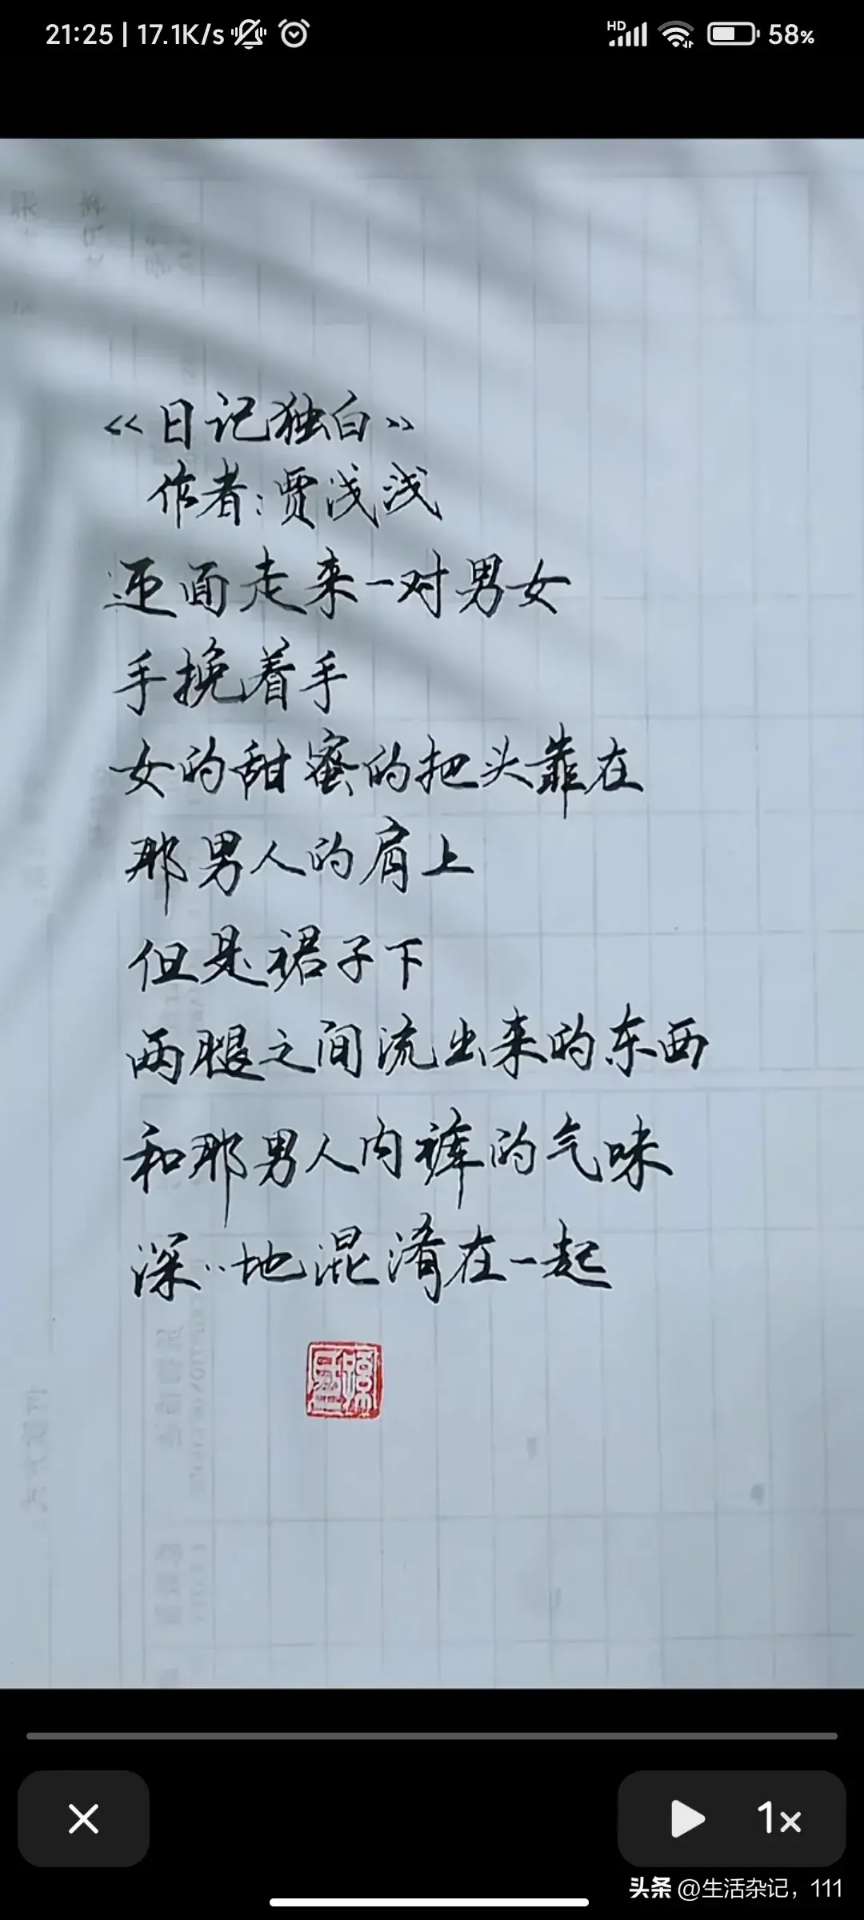 21:25 | 17.1K/s
HD
58%
《日记独白》
作者:贾浅浅
迎面走来一对男女
手挽着手
女的甜蜜的把头靠在
那男人的肩上
但是裙子下
两腿之间流出来的东西
和那男人内裤的气味
深··地混淆在一起
1x
头条 @生活杂记，111